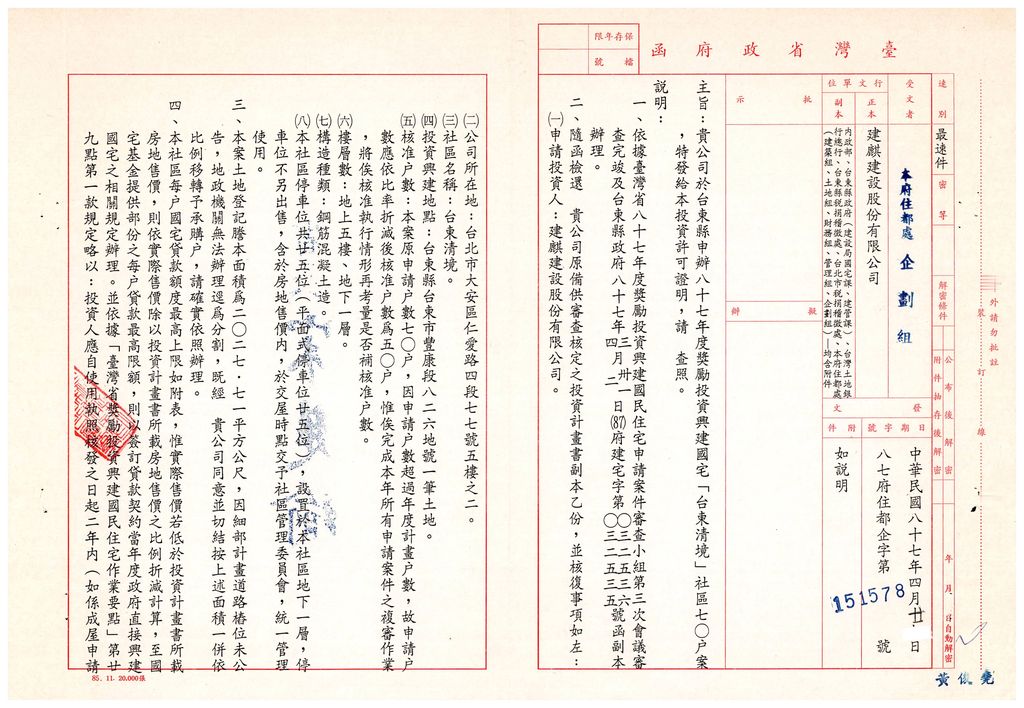 臺灣省政府函
保存年限
檔號
速別
最速件
密等
解密條件
公布後解密
附件抽存後解密
年 月 日自動解密
裝訂線
外請勿批註
受文者
本府住都處企劃組
行文單位
正本
副本
建麒建設股份有限公司
內政部、台東縣政府(建設局國宅課、建管課)、台灣土地銀
行總行、台東縣稅捐稽徵處、台北市稅捐稽徵處、本府住都處
(建築組、土地組、財務組、管理組、企劃組)—均含附件
發文
日期
字號
附件
中華民國八十七年四月廿一日
八七府住都企字第151578號
如說明
批示
擬辦
主旨:貴公司於台東縣申辦八十七年度獎勵投資興建國宅「台東清境」社區七〇户案
,特發給本投資許可證明,請 查照。
說明:
一、依據臺灣省八十七年度獎勵投資興建國民住宅申請案件審查小組第三次會議審
查完竣及台東縣政府八十七年四月卅一二日(87)府建宅字第〇〇三三二二五五三三六五號函副本
辦理。
二、隨函檢還 貴公司原備供審查核定之投資計畫書副本乙份,並核復事項如左:
㈠申請投資人:建麒建設股份有限公司。
㈡公司所在地:台北市大安區仁愛路四段七七號五樓之二。
㈢社區名稱:台東清境。
㈣投資興建地點:台東縣台東市豐康段八二六地號一筆土地。
㈤核准户數:本案原申請户數七〇户,因申請户數超過年度計畫户數,故申請户
數應依比率折減後核准户數為五〇户,惟俟完成本年所有申請案件之複審作業
,將俟核准執行情形再考量是否補核准户數。
㈥樓層數:地上五樓、地下一層。
㈦構造種類:鋼筋混凝土造。
㈧本社區停車位共廿五位(平面式停車位廿五位),設置於本社區地下一層,停
車位不另出售,含於房地售價內,於交屋時點交予社區管理委員會,統一管理
使用。
三、本案土地登記謄本面積為二〇二七.七一平方公尺,因細部計畫道路樁位未公
告,地政機關無法辦理逕為分割,既經 貴公司同意並切結按上述面積一併依
比例移轉予承購户,請確實依照辦理。
四、本社區每户國宅貸款額度最高上限如附表,惟實際售價若低於投資計畫書所載
房地售價,則依實際售價除以投資計畫書所載房地售價之比例折減計算,至國
宅基金提供部份之每户貸款最高限額,則以簽訂貸款契約當年度政府直接興建
國宅之相關規定辦理。並依據「臺灣省獎勵投資興建國民住宅作業要點」第廿
九點第一款規定略以:投資人應自使用執照核發之日起二年內(如係成屋申請
85. 11. 20,000張
黃俊堯